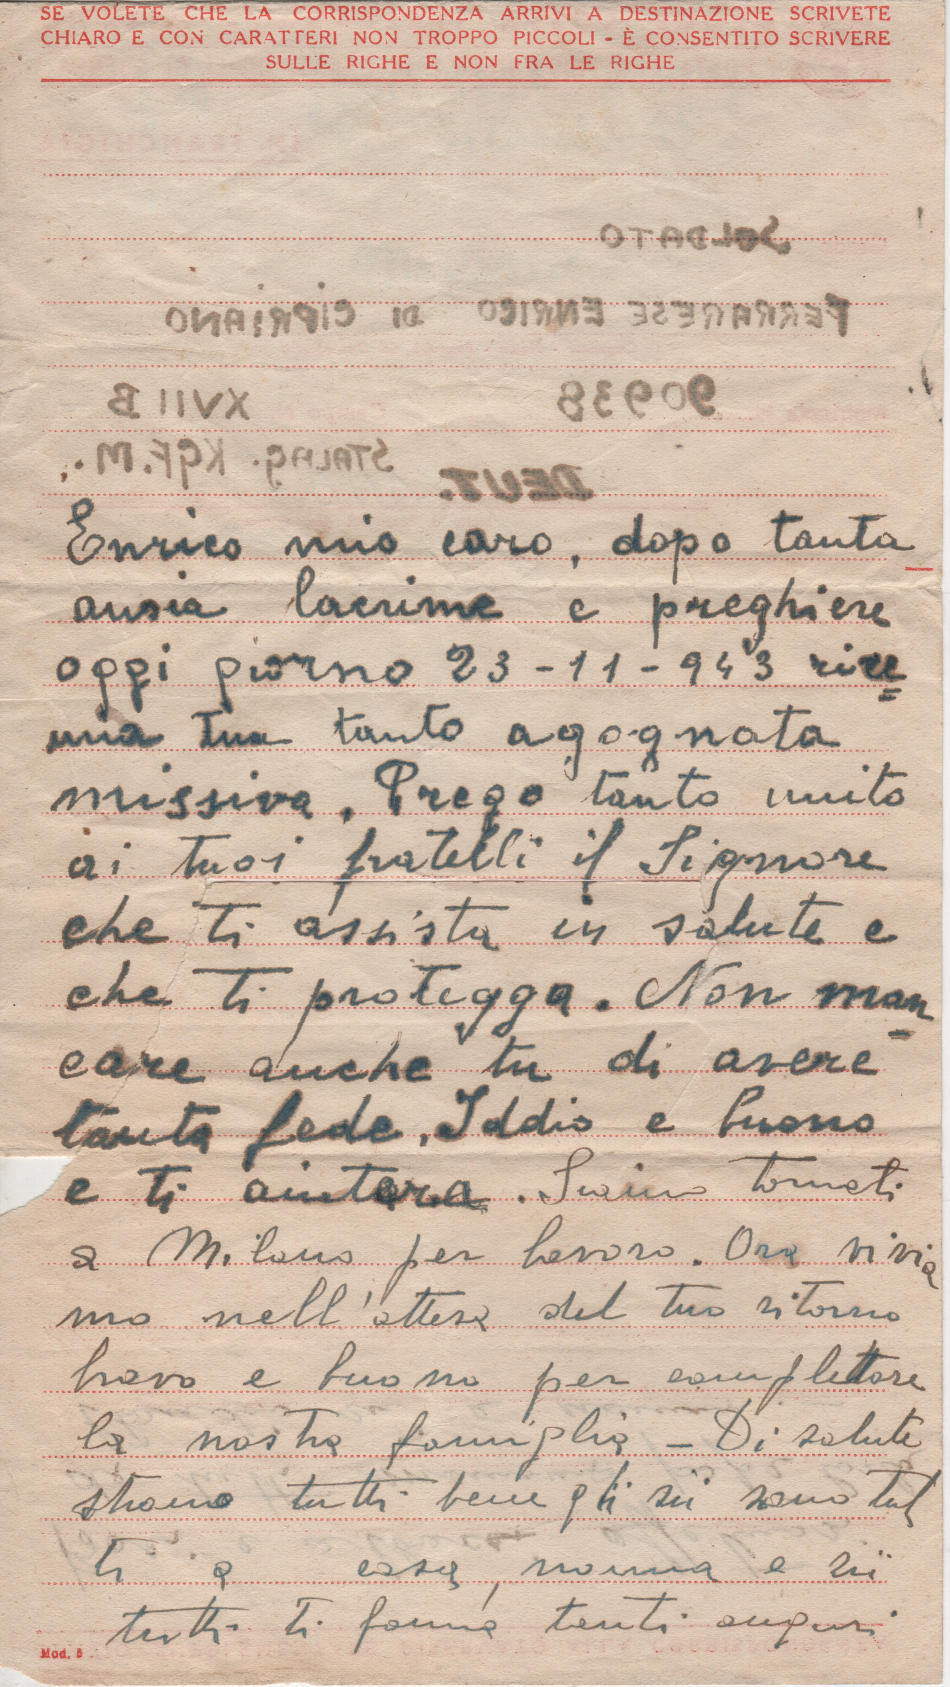 SE VOLETE CHE LA CORRISPONDENZA ARRIVI A DESTINAZIONE SCRIVETE
CHIARO E CON CARATTERI NON TROPPO PICCOLI - È CONSENTITO SCRIVERE
SULLE RIGHE E NON FRA LE RIGHE
SOLDATO
FERRARESE ENRICO DI CIPRIANO
90938 XVII B
STALAG. KGF. M.
DEUT.
Enrico mio caro, dopo tanta
ansia lacrime e preghiere
oggi giorno 23-11-943 rice
una tua tanto agognata
missiva. Prego tanto unito
ai tuoi fratelli il Signore
che ti assista in salute e
che ti protegga. Non man
care anche tu di avere
tanta fede, Iddio e buono
e ti aiutera. Siamo tornati
a Milano per lavoro. Ora vivia
mo nell'attesa del tuo ritorno
bravo e buono per complettare
la nostra famiglia - Di salute
stiamo tutti bene gli zii sono tut
ti a casa, nonna e zii
tutti ti fanno tanti auguri
Mod. B